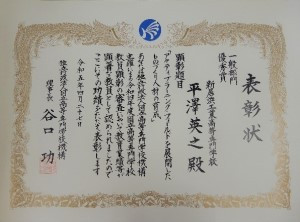 表彰状
一般部門
優秀賞
新居浜工業高等専門学校
平澤英之殿
顕彰題目
「アクティブラーニングフィールドを展開した
ものづくり人材の育成」
あなたは独立行政法人国立高等専門学校機構
主催による令和四年度国立高等専門学校
教員顕彰の審査において教育業績等が
顕著な教員として認められましたので
ここにその功績をたたえ表彰します
令和五年四月二十七日
独立行政法人国立高等専門学校機構
理事長 谷口功